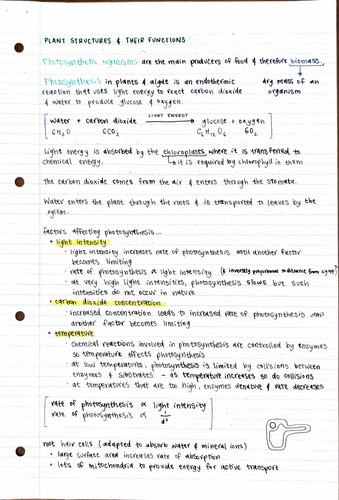 PLANT STRUCTURES & THEIR FUNCTIONS
Photosynthetic organisms are the main producers of food & therefore biomass.
Photosynthesis in plants & algae is an endothermic
dry mass of an
reaction that uses light energy to react carbon dioxide
organism
& water to produce glucose & oxygen.
LIGHT ENERGY
water + carbon dioxide → glucose + oxygen
6H₂O 6CO₂ C₆H₁₂O₆ 6O₂
Light energy is absorbed by the chloroplasts, where it is transferred to
chemical energy.
it is required by chlorophyll in them
The carbon dioxide comes from the air & enters through the stomata.
Water enters the plant through the roots & is transported to leaves by the
xylem.
factors affecting photosynthesis...
• light intensity
· light intensity increases rate of photosynthesis until another factor
becomes limiting
· rate of photosynthesis ∝ light intensity (& inversely proportional to distance from light)
· at very high light intensities, photosynthesis slows but such
intensities do not occur in nature
• carbon dioxide concentration
· increased concentration leads to increased rate of photosynthesis until
another factor becomes limiting
• temperature
· chemical reactions involved in photosynthesis are controlled by enzymes
so temperature effects photosynthesis
· at low temperatures, photosynthesis is limited by collisions between
enzymes & substrates - as temperature increases so do collisions
· at temperatures that are too high, enzymes denature & rate decreases
rate of photosynthesis ∝ light intensity
rate of photosynthesis ∝ 1/d²
root hair cells (adapted to absorb water & mineral ions)
• large surface area increases rate of absorption
• lots of mitochondria to provide energy for active transport